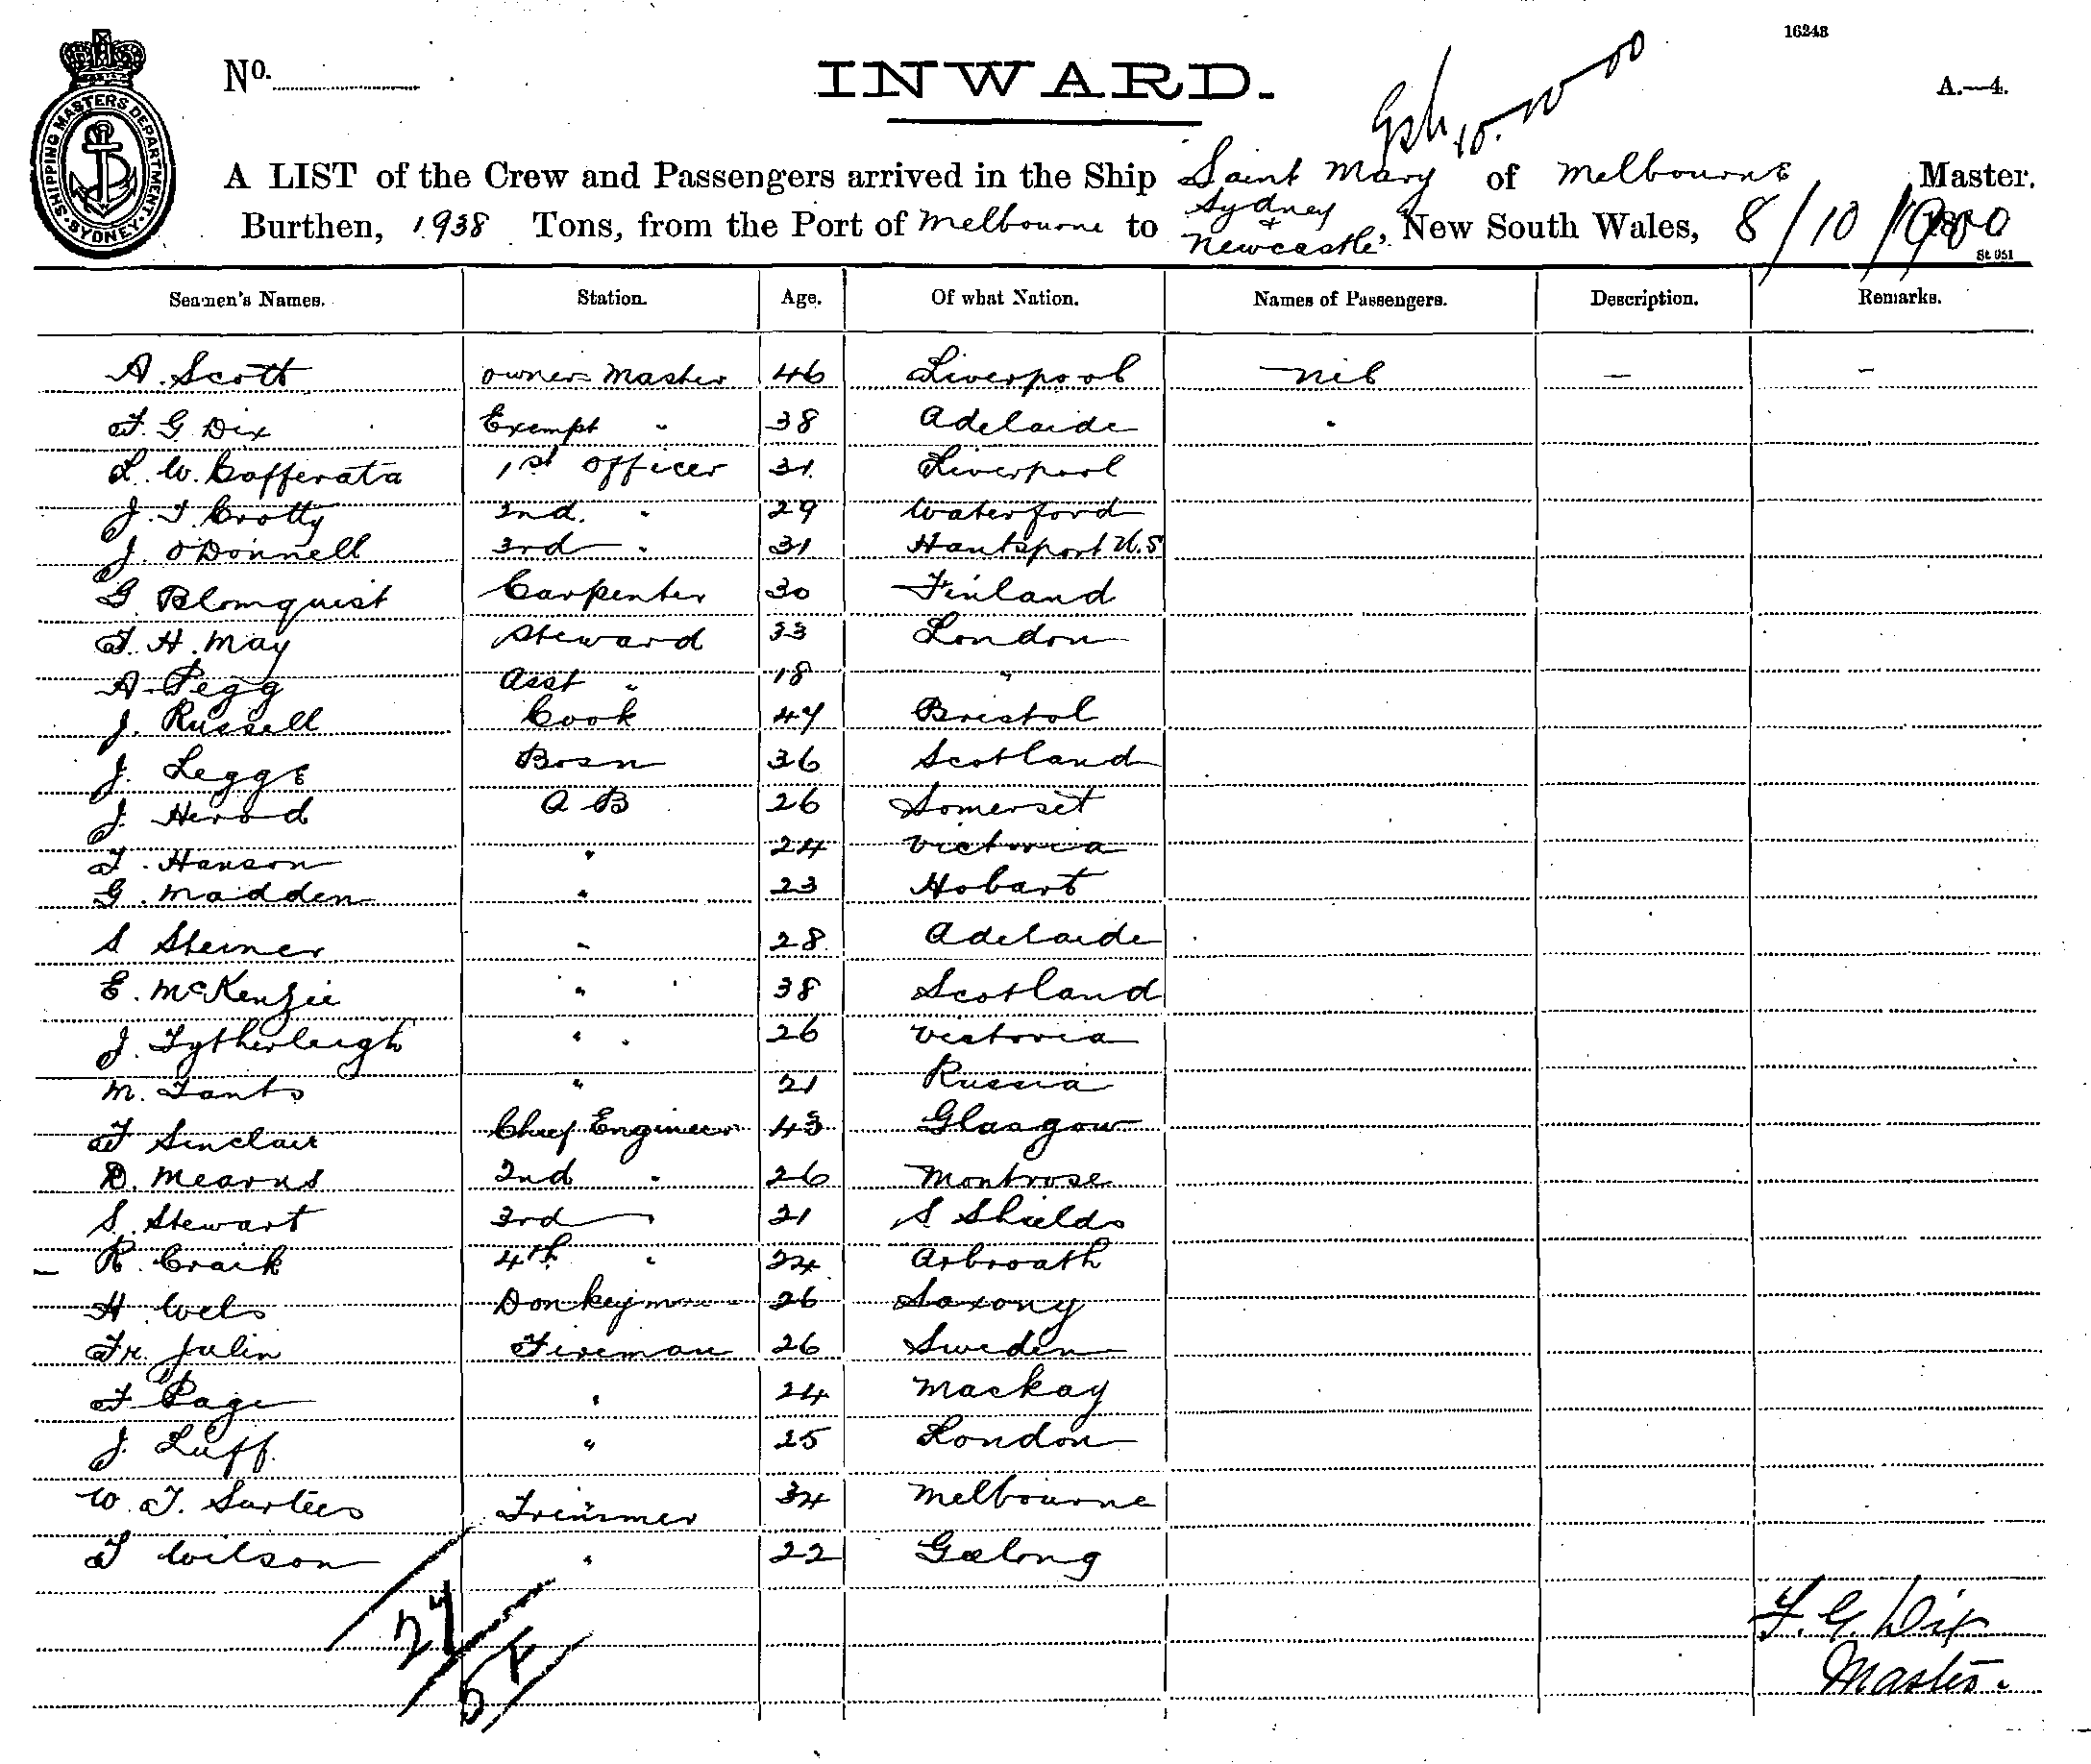 16248
No.
INWARD.
A.—4.
SHIPPING MASTERS DEPARTMENT. SYDNEY.
A LIST of the Crew and Passengers arrived in the Ship Saint Mary of Melbourne, Master.
Burthen, 1938 Tons, from the Port of Melbourne to Sydney + Newcastle, New South Wales, 8/10/1900
St 051
Seamen's Names. Station. Age. Of what Nation. Names of Passengers. Description. Remarks.
A. Scott owner Master 46 Liverpool nil — —
F. G Dix Exempt " 38 Adelaide
L. W. Cafferata 1st Officer 31 Liverpool
J. T. Crotty 2nd. " 29 Waterford
J. O'Donnell 3rd " 31 Hantsport N.S
G. Blomquist Carpenter 30 Finland
F. H. May Steward 33 London
A. Pegg Asst " 18 "
J. Russell Cook 47 Bristol
J. Legge Bosn 36 Scotland
J. Herod A B 26 Somerset
T. Hanson " 24 Victoria
G. Madden " 23 Hobart
S Steiner " 28 Adelaide
E. McKenzie " 38 Scotland
J. Tytherleigh " 26 Victoria
M. Tants " 21 Russia
F Sinclair Chief Engineer 43 Glasgow
D. Mearns 2nd " 26 Montrose
S. Stewart 3rd " 21 S Shields
R. Craik 4th " 24 Arbroath
H. Wels Donkeyman 26 Saxony
Fr. Julin Fireman 26 Sweden
F Page " 24 Mackay
J. Luff. " 25 London
W. F. Surtees Trimmer 34 Melbourne
T Wilson " 22 Geelong
27
F. G. Dix
Master.